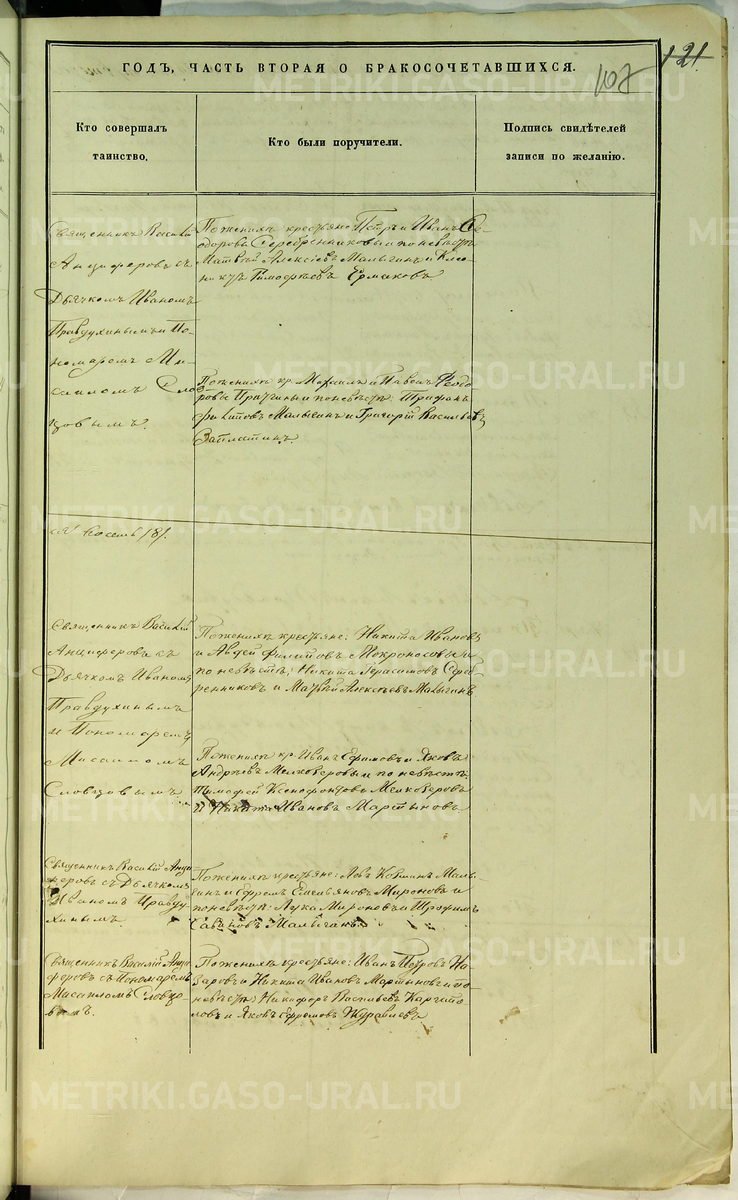 121.
107
ГОДЪ, ЧАСТЬ ВТОРАЯ О БРАКОСОЧЕТАВШИХСЯ.
Кто совершалъ
таинство.
Кто были поручители.
Подпись свидѣтелей
записи по желанію.
Священникъ Василій
Анциферовъ съ
Дьячкомъ Иваномъ
Правдухинымъ и По-
номаремъ Ми-
саиломъ Слов-
цовымъ.
По женихѣ крестьяне Петръ и Иванъ Ѳе-
доровы Серебренниковы и по невѣстѣ
Матвѣй Алексѣевъ Малыгинъ и
Тимофѣевъ Ермаковъ
По женихѣ кр. и Павелъ Ѳеодо-
ровы и по невѣстѣ Трифонъ
Филиповъ Малыгинъ и Григорій Васильевъ
Заплатинъ.
Священникъ Василій
Анциферовъ съ
Дьячкомъ Иваномъ
Правдухинымъ
и Пономаремъ
Мисаиломъ
Словцовымъ
По женихѣ крестьяне: Никита Ивановъ
и Авдей Филиповъ Мокроносовы и
по невѣстѣ: Никита Герасимовъ Сереб-
ренниковъ и Матвѣй Алексѣевъ Малыгинъ
По женихѣ кр. Иванъ Ефимовъ и Яковъ
Андреевъ Мелкозеровы и по невѣстѣ
Тимофей Ксенофонтовъ Мелкозеровъ
и Никита Ивановъ Мартыновъ
Священникъ Василій Анци-
феровъ съ Дьячкомъ
Иваномъ Правду-
хинымъ.
По женихѣ крестьяне: Малы-
гинъ и Ефремъ Емельяновъ Мироновъ и
по невѣстѣ: Лука Мироновъ и Трофимъ
Савиновъ Малыгинъ
Священникъ Василій Анци-
феровъ съ Пономаремъ
Мисаиломъ Словцо-
вымъ.
По женихѣ крестьяне: Иванъ Петровъ На-
заровъ и Никита Ивановъ Мартыновъ и по
невѣстѣ: Никифоръ Каргапо-
ловъ и Яковъ Ефремовъ Журавлевъ
METRIKI.GASO-URAL.RU